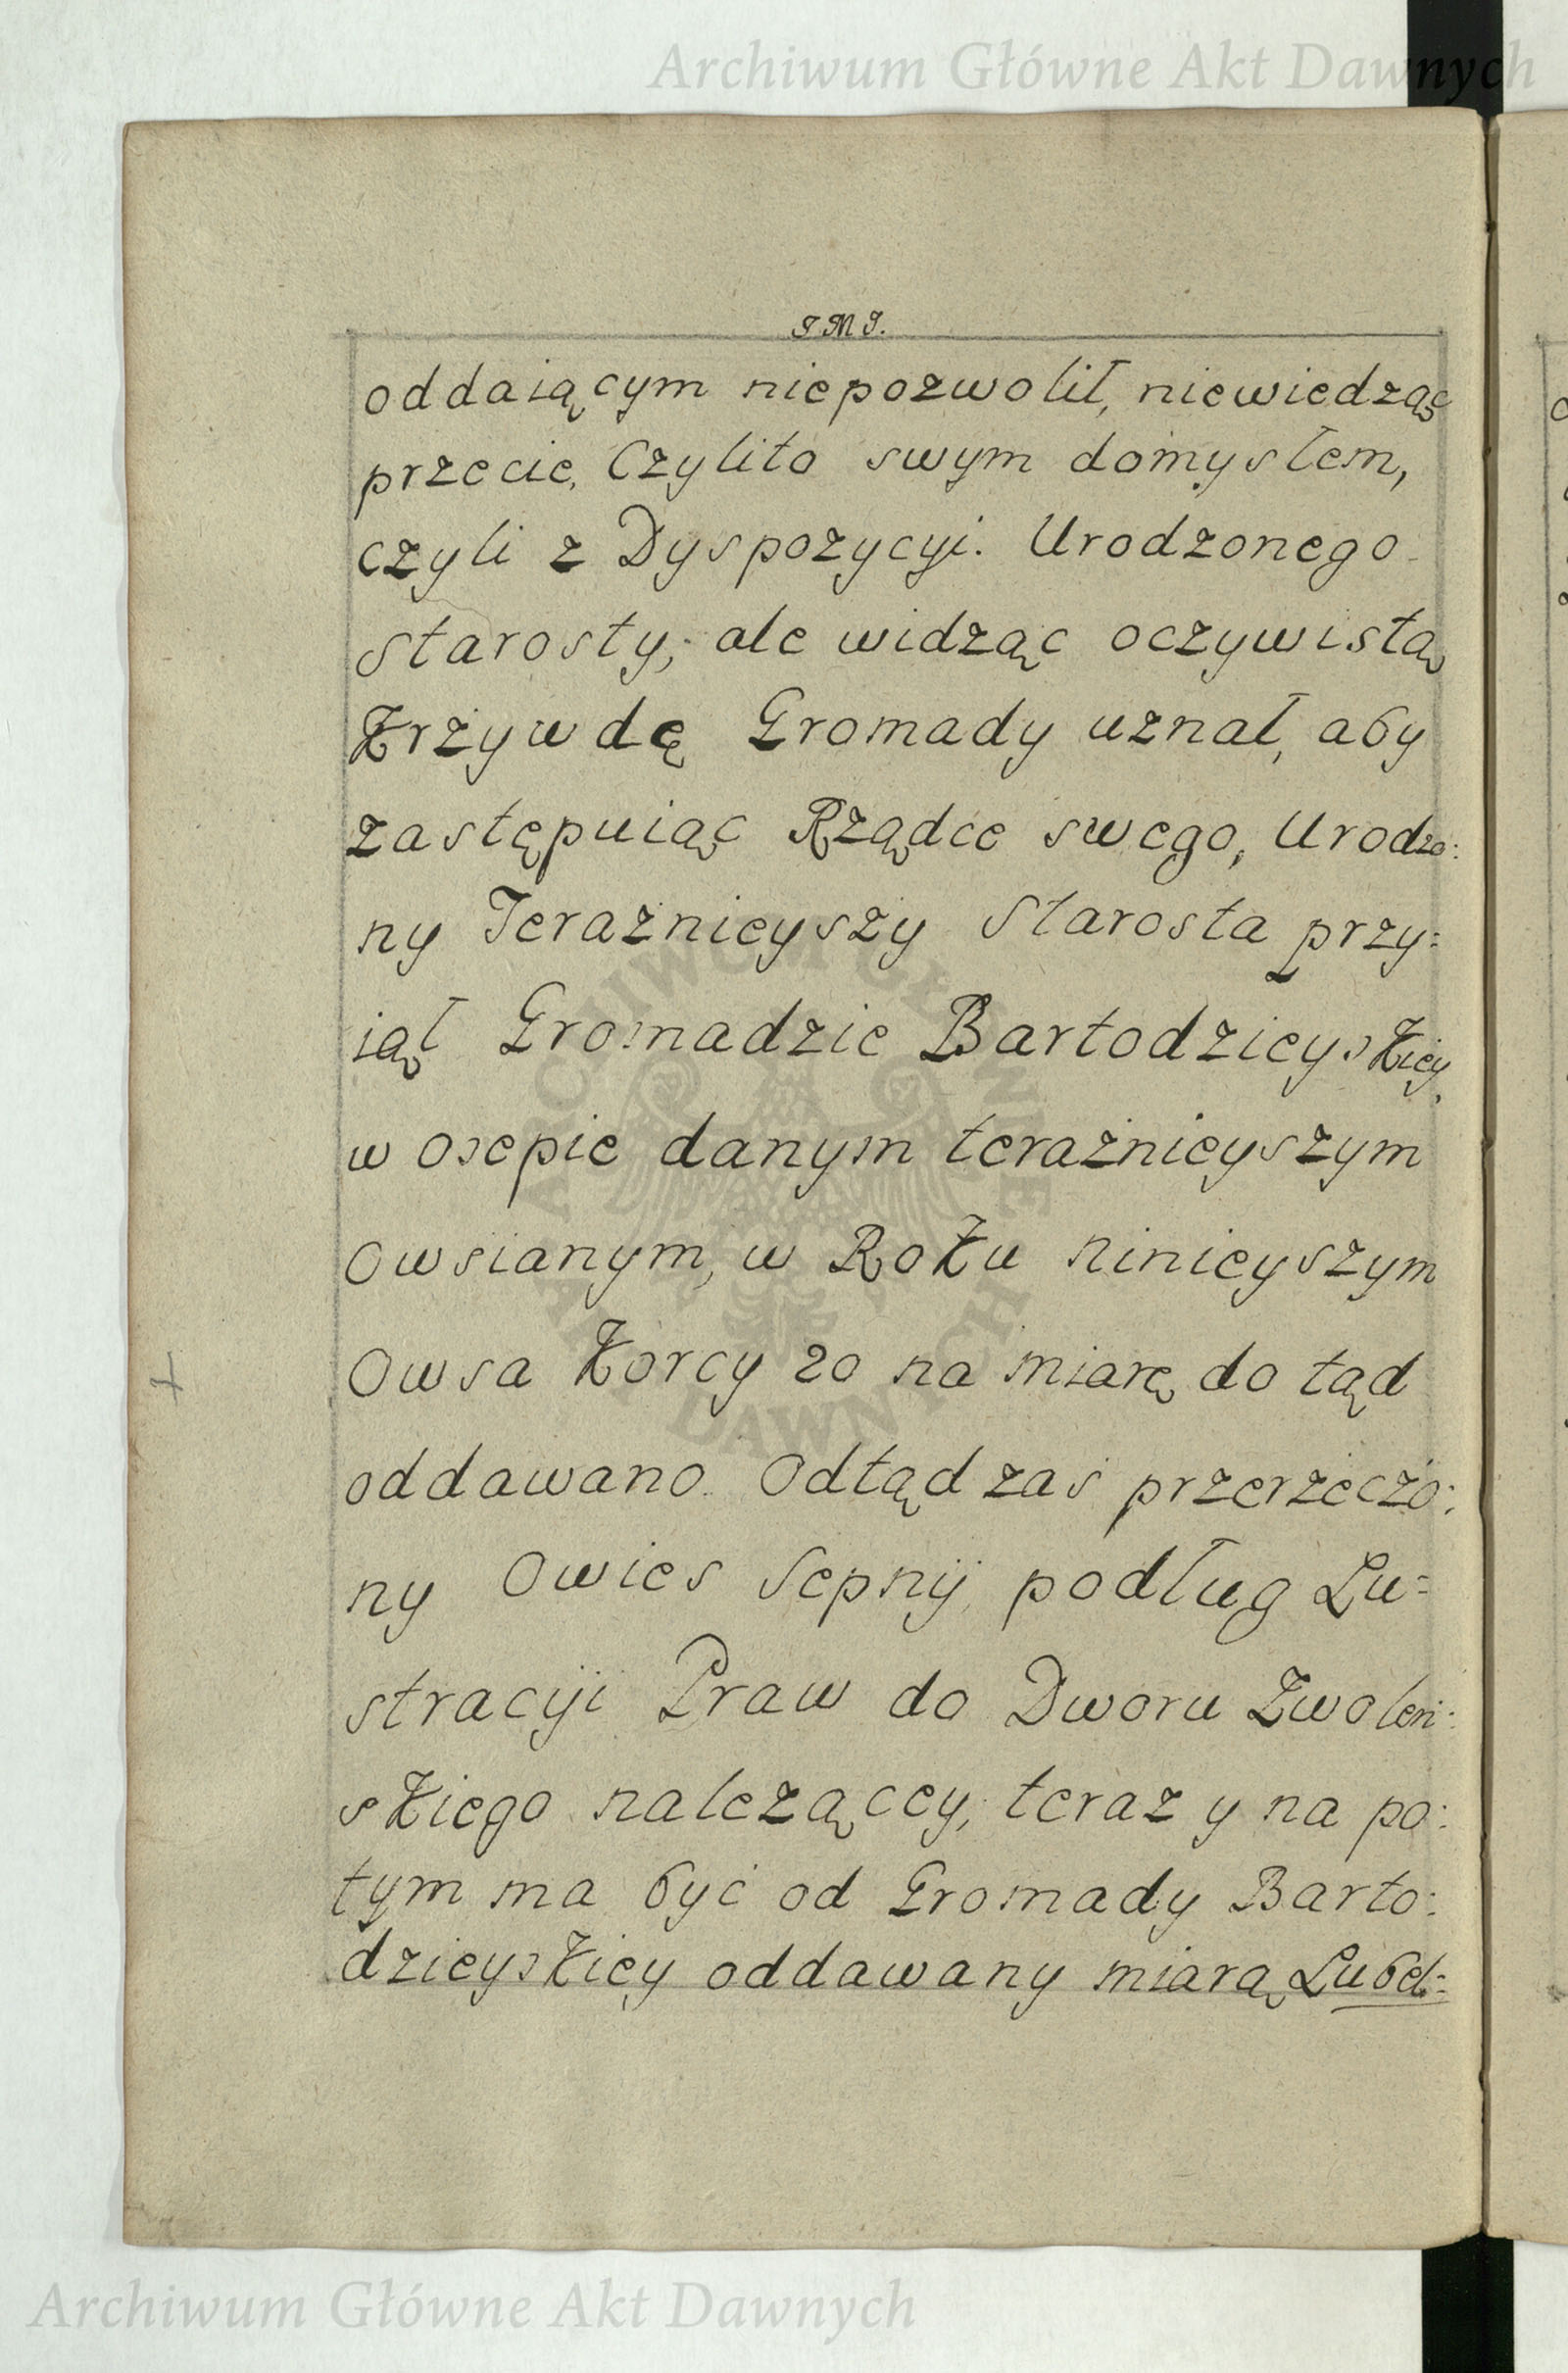 Archiwum Główne Akt Dawnych
J M J.
oddaiącym niepozwolił, niewiedząc
przecie, Czylito swym domysłem,
czyli z Dyspozycyi. Urodzonego
starosty; ale widząc oczywistą
Krzywdę Gromady uznał, aby
zastępuiąc Rządce swego, Urodzo:
ny Teraznieyszy Starosta przy:
iął Gromadzie Bartodzieyskiey,
w osepie danym teraznieyszym
owsianym, w Roku ninieyszym
Owsa Korcy 20 na miarę do tąd
oddawano. Odtąd zaś przerzeczo:
ny Owies Sepny podług Lu=
stracyi Praw do Dworu Zwoleń:
skiego należącey, teraz y na po:
tym ma być od Gromady Barto:
dzieyskiey oddawany miarą Lubel:
ARCHIWUM GŁÓWNE
AKT DAWNYCH
Archiwum Główne Akt Dawnych